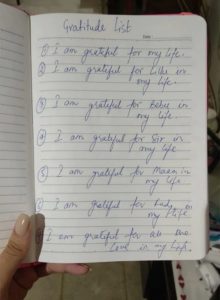 Gratitude List
Date:
① I am grateful for my life.
② I am grateful for Lilli in
my life.
③ I am grateful for Bebu in
my life.
④ I am grateful for Sir in
my life
⑤ I am grateful for Maam in
my life
I am grateful for Lady in
my life
I am grateful for all the
Love in my life.